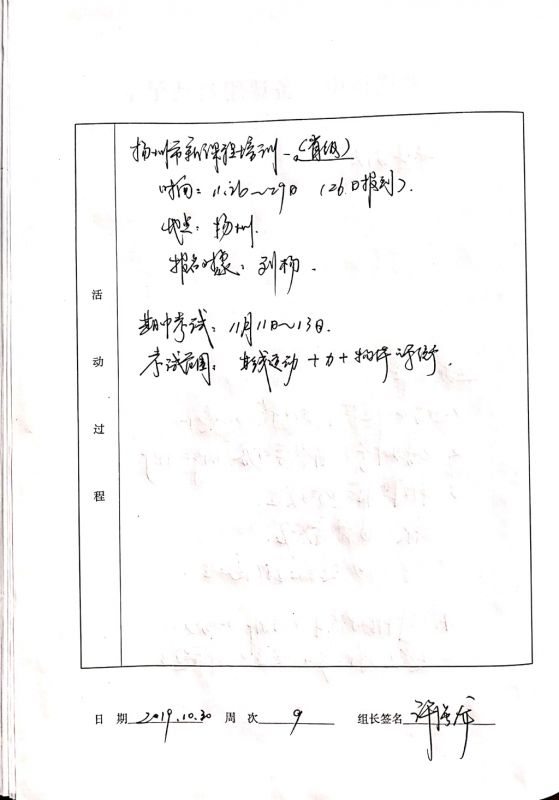 扬州市新课程培训-(省级)
时间：11.26～29日 (26日报到).
地点：扬州.
报名对象：刘杨.
期中考试：11月11日～13日.
考试范围：直线运动+力+物体平衡.
活动过程
日期 2019.10.30 周次 9 组长签名